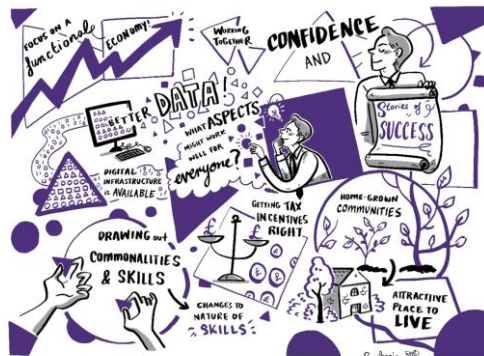 FOCUS ON A
functional
ECONOMY!
WORKING
TOGETHER
CONFIDENCE
AND
Stories of
SUCCESS
BETTER
DATA!
WHAT ASPECTS
MIGHT WORK
WELL FOR
everyone?
DIGITAL
INFRASTRUCTURE
is AVAILABLE
GETTING TAX
INCENTIVES
RIGHT
£
£
£
£
HOME-GROWN
COMMUNITIES
DRAWING out
COMMONALITIES
& SKILLS
CHANGES TO
NATURE OF
SKILLS
ATTRACTIVE
PLACE TO
LIVE